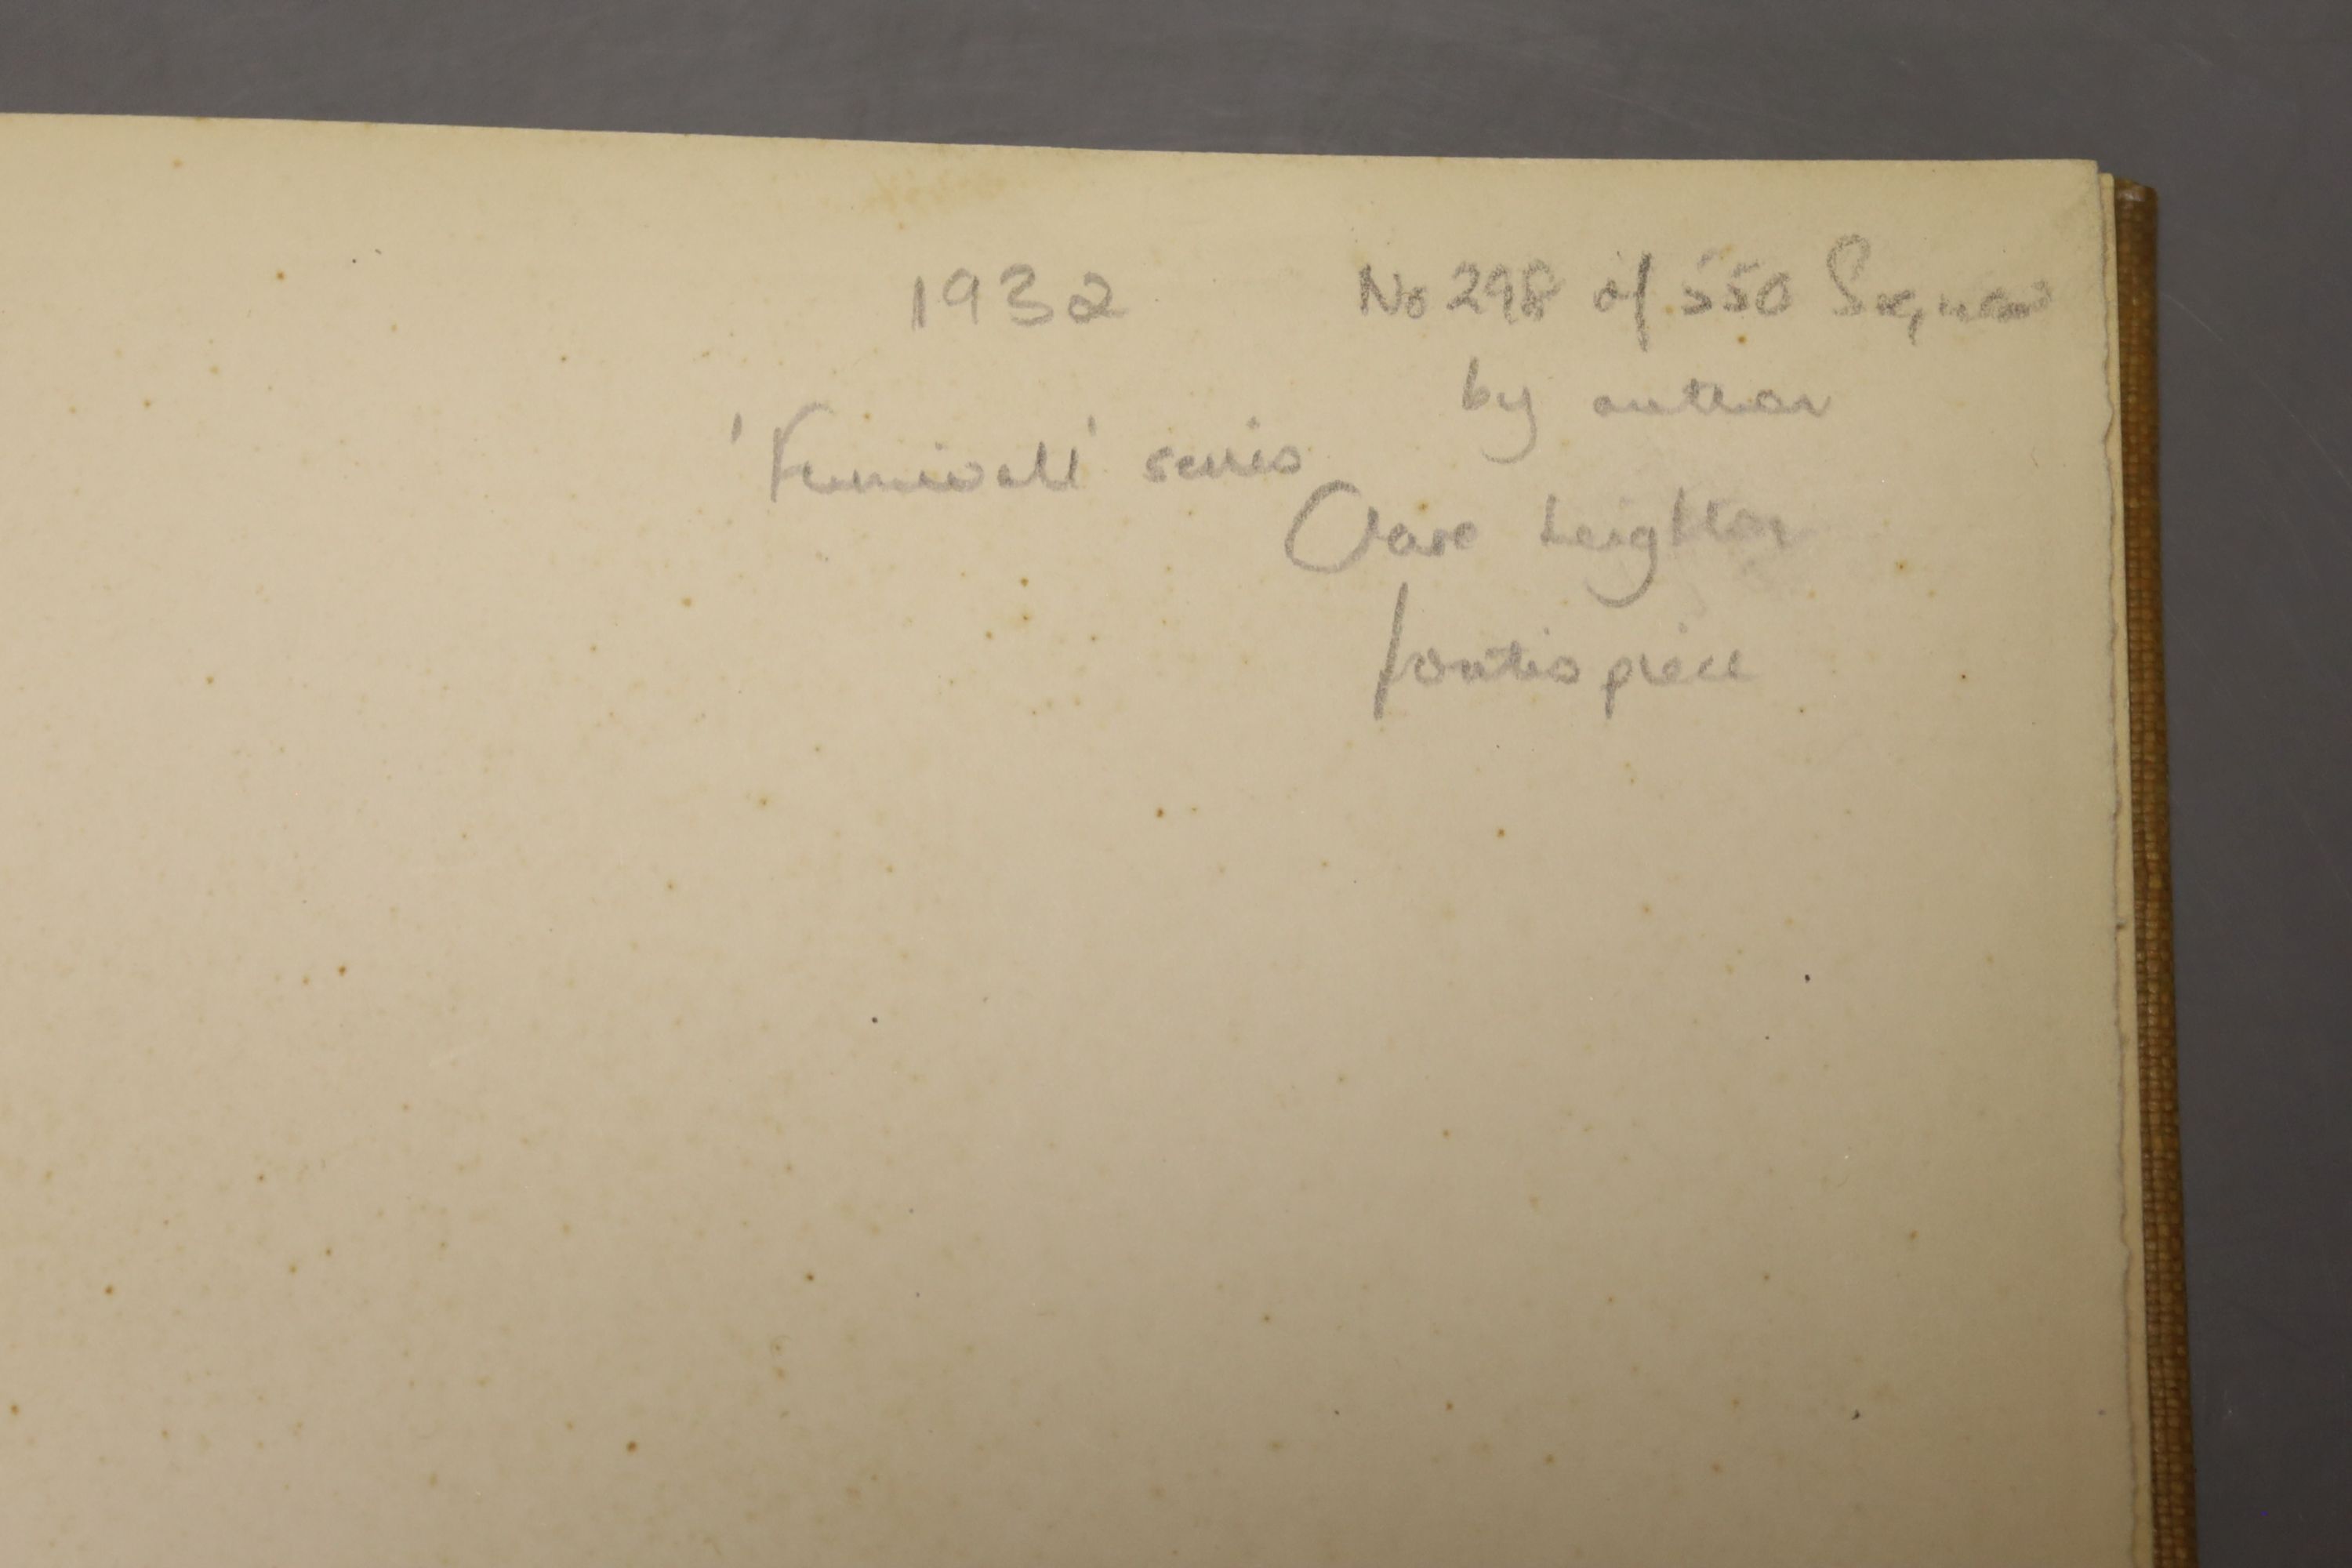 1932 No 298 of 550 Signed
by author
'Furnival' series
Clare Leighton
frontispiece